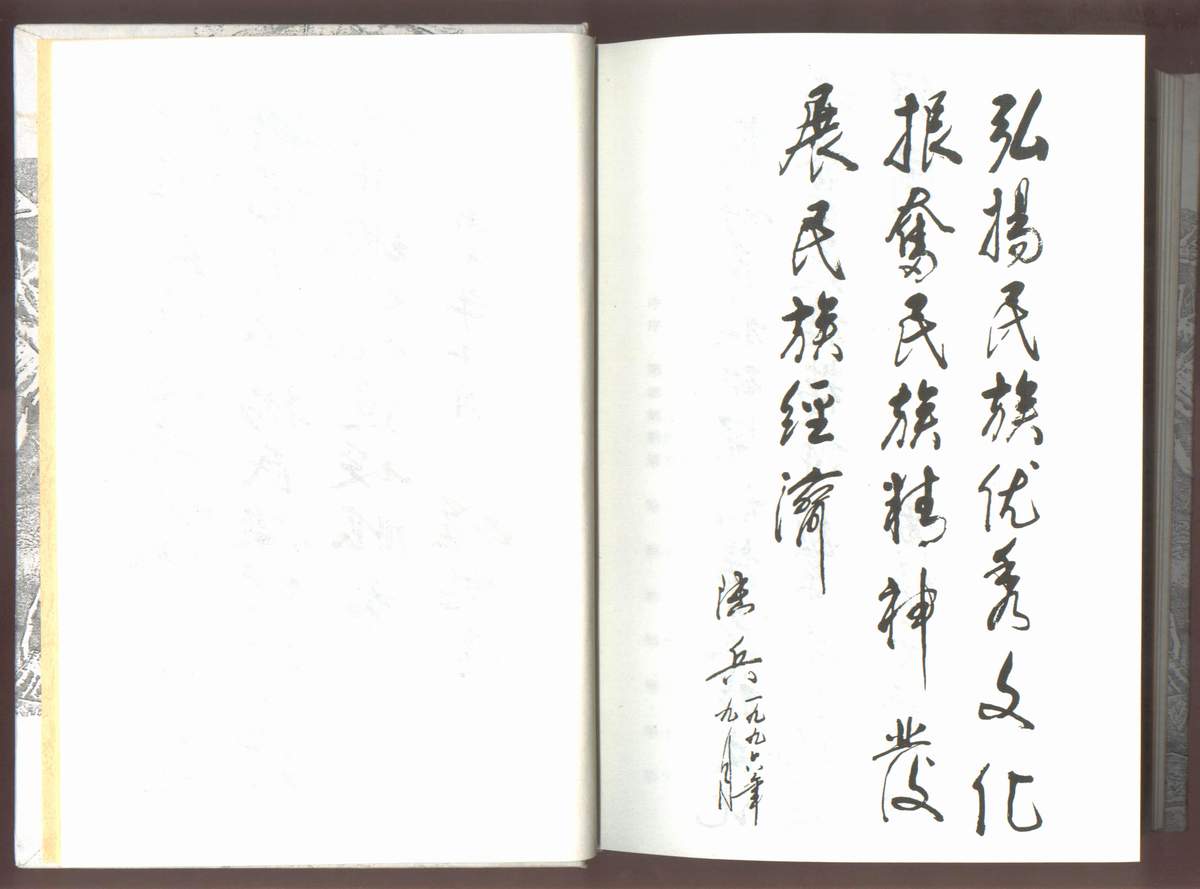 弘揚民族优秀文化
振奮民族精神發
展民族經濟
陸兵
一九九六年
九月